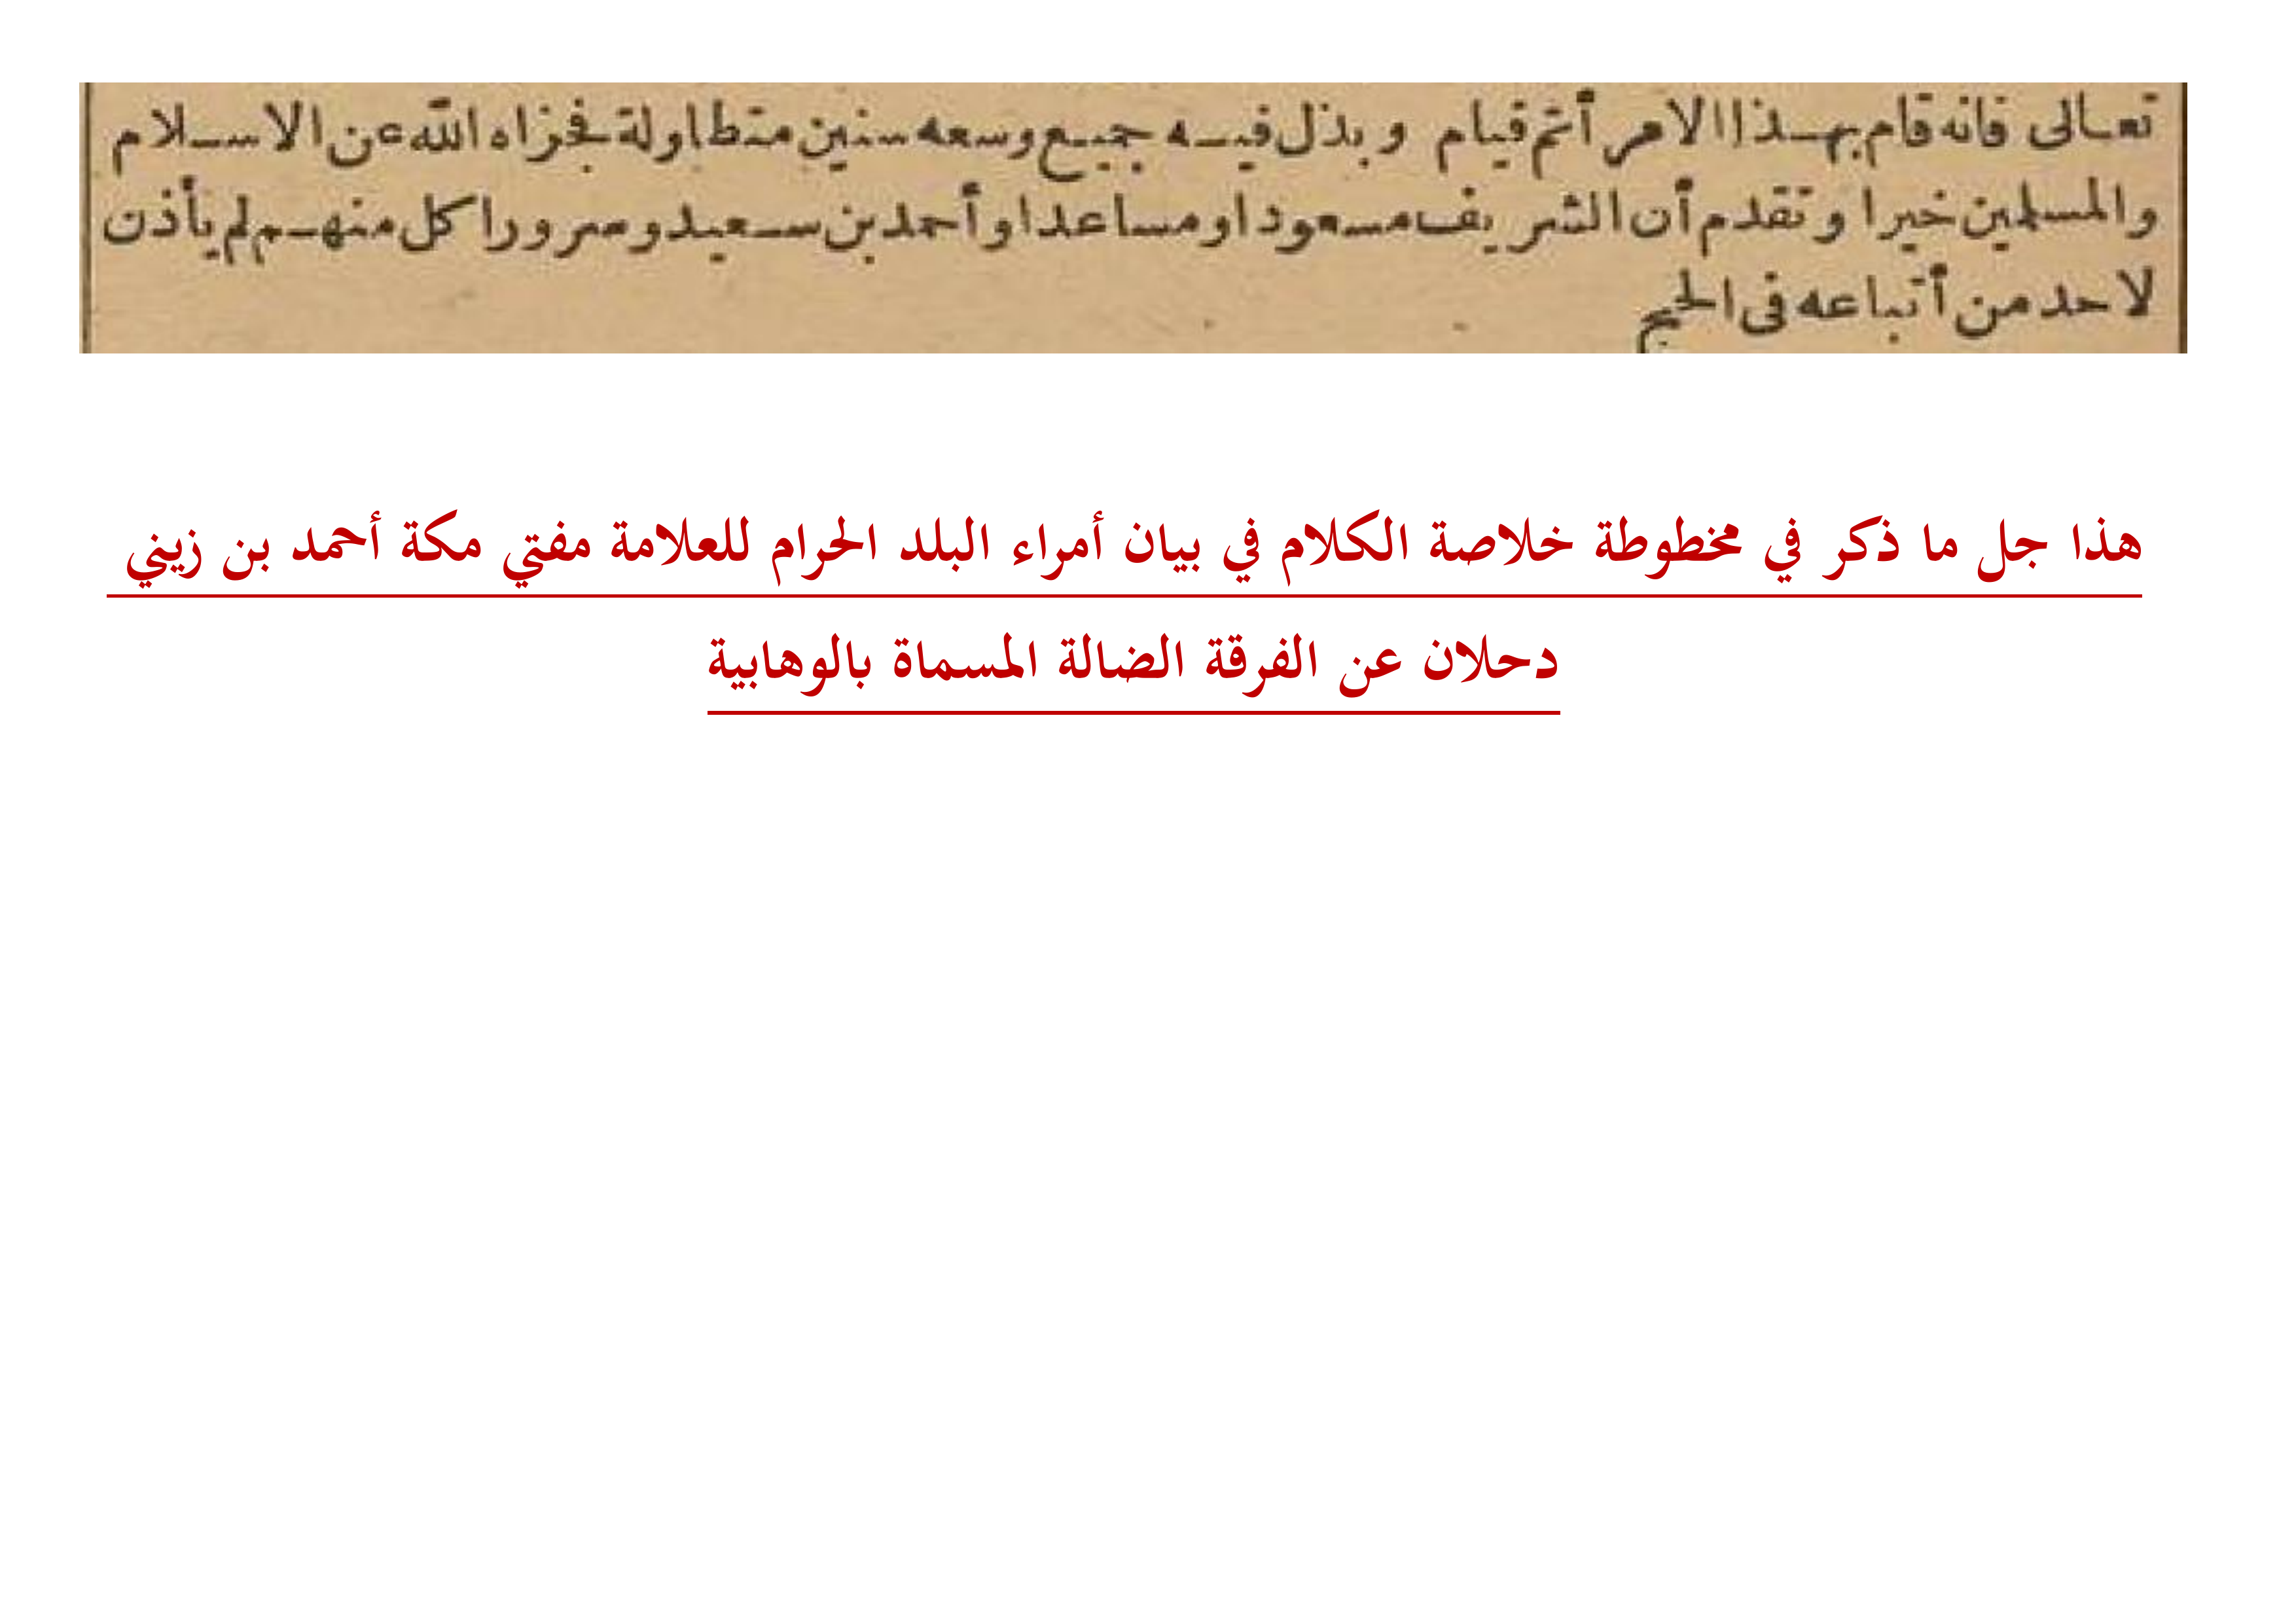 تعالى فانه قام بهذا الامر أتم قيام وبذل فيه جميع وسعه سنين متطاولة فجزاه الله عن الاسلام
والمسلمين خيرا وتقدم أن الشريف مسعودا ومساعدا وأحمد بن سعيد وسرورا كل منهم لم يأذن
لاحد من أتباعه فى الحج
هذا جل ما ذكر في مخطوطة خلاصة الكلام في بيان أمراء البلد الحرام للعلامة مفتي مكة أحمد بن زيني
دحلان عن الفرقة الضالة المسماة بالوهابية